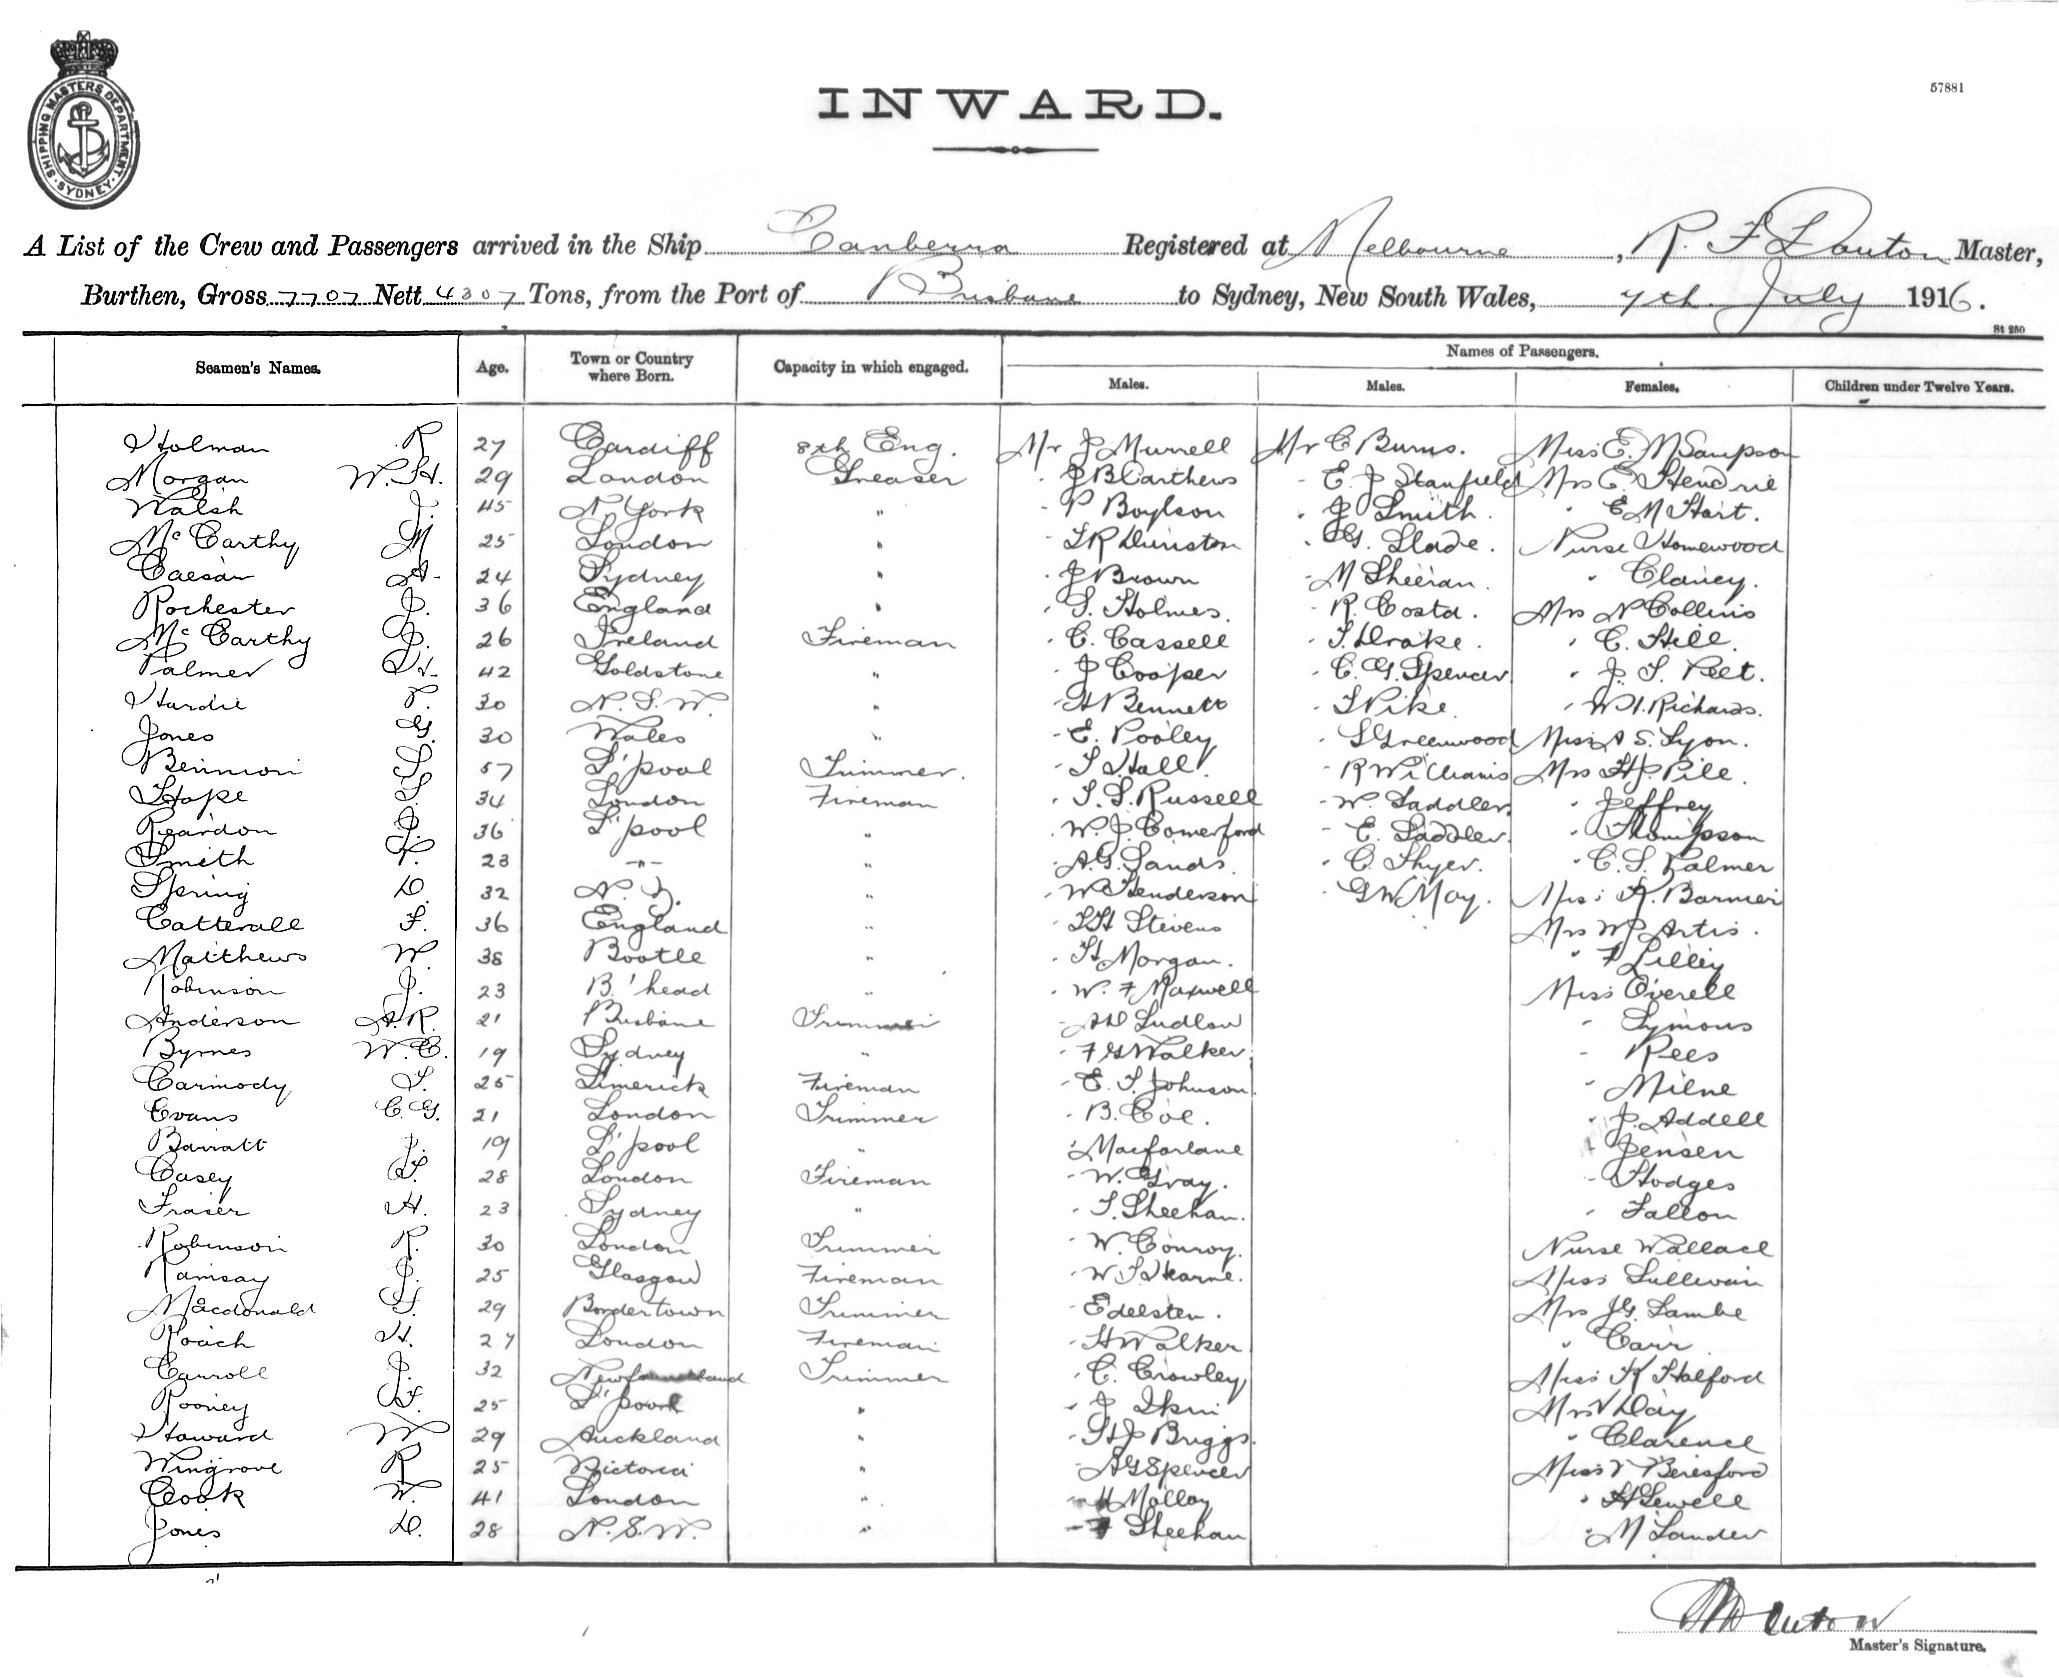 SHIPPING MASTERS DEPARTMENT
SYDNEY
INWARD.
57881
A List of the Crew and Passengers arrived in the Ship Canberra Registered at Melbourne, R. F. Dauton Master,
Burthen, Gross 7707 Nett 4307 Tons, from the Port of Brisbane to Sydney, New South Wales, 7th July 1916.
St 250
Seamen's Names. Age. Town or Country where Born. Capacity in which engaged. Names of Passengers.
Males. Males. Females. Children under Twelve Years.
Holman R 27 Cardiff 8th Eng. Mr J Murrell Mr C Burns. Miss E. M Sampson
Morgan W. H. 29 London Greaser " J B Carthews " E. J Stanfield Mrs C. Hendrie
Walsh J. 45 N. York " " P Boylson " J Smith. " E M Hart.
McCarthy M 25 London " " T R Dunston " G. Slade. Nurse Homewood
Caesar A. 24 Sydney " " J Brown " M Sheeran. " Clancy.
Rochester J. 36 England " " S. Holmes. " R. Costa. Mrs N Collins
McCarthy J. 26 Ireland Fireman " C. Cassell " T. Drake. " C. Hill.
Palmer H. 42 Goldstone " " J Cooper " C. G. Spencer " J. S. Peet.
Hardie P. 30 N. S. W. " " H Bennett " T Pike. " W. J. Richards.
Jones G. 30 Wales " " E. Pooley " S Greenwood Miss A S. Lyon.
Bennion S. 57 L'pool Trimmer. " T Hall. " R Williams Mrs H J Pill.
Hope S. 34 London Fireman " T. S. Russell " W. Saddler. " Jeffrey
Reardon J. 36 L'pool " " W. J. Comerford " E. Saddler. " Thompson
Smith F. 23 -"- " " A. G. Sands. " C. Thyer. " C. S. Palmer
Spring D. 32 N. Z. " " W Henderson " G W May. Miss K. Barnier
Catterall F. 36 England " " T H Stevens Mrs W J Artis.
Matthews W. 38 Bootle " " H Morgan. " F Lilley
Robinson J. 23 B'head " " W. F Maxwell Miss Overell
Anderson A. R. 21 Brisbane Trimmer " A D Ludlow " Symons
Byrnes W. C. 19 Sydney " " F G Walker " Rees
Carmody S. 25 Limerick Fireman " E. T. Johnson. " Milne
Evans C. G. 21 London Trimmer " B. Coe. " J. Addell
Barratt J. 19 L'pool " " Macfarlane " Jensen
Casey 28 London Fireman " W. Gray. " Hodges
Fraser H. 23 Sydney " " T. Sheehan. " Fallon
Robinson R. 30 London Trimmer " W. Conroy. Nurse Wallace
Ramsay J. 25 Glasgow Fireman " W. J. Hearne. Miss Sullivan
Macdonald 29 Bordertown Trimmer " Edelsten. Mrs J G. Lambe
Roach H. 27 London Fireman " H Walker " Carr
Carroll J. 32 Newfoundland Trimmer " C. Crowley Miss K Halford
Rooney 25 L'pool " " J Skin Mrs V Day
Howard W 29 Auckland " " H J Briggs. " Clarence
Wingrove R 25 Victoria " " A G Spencer Miss V Beresford
Cook W. 41 London " " H Molloy " H Sewell
Jones D. 28 N. S. W. " " F Sheehan " M Lander
Master's Signature.